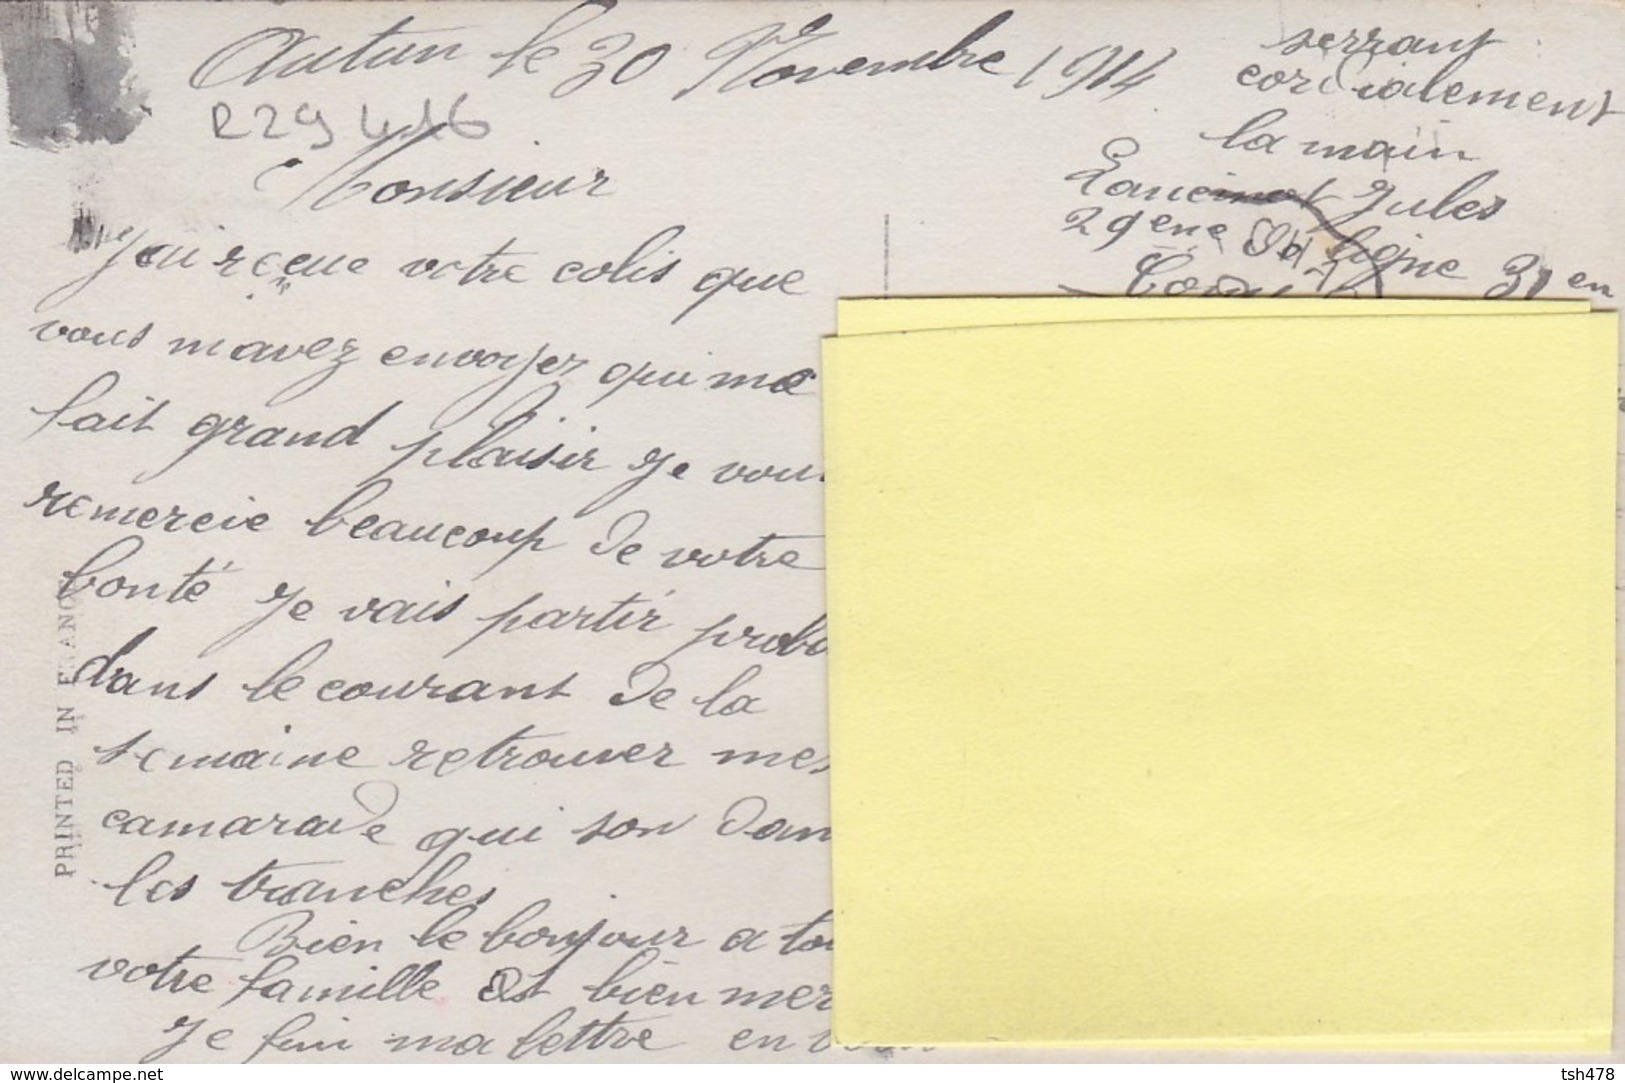 Autun le 30 Novembre 1914
R29 416
Monsieur
J'ai reçue votre colis que
vous mavez envoyez qui me
fait grand plaisir je vou
remercie beaucoup de votre
bonté je vais partir prob
dans le courant de la
semaine retrouver mes
camarade qui son dan
les tranches
Bien le bonjour a to
votre famille et bien mer
je fini ma lettre en
serrant
cordialement
la main
Jules
29ene de ligne 31 en
PRINTED IN FRANCE
www.delcampe.net
tsh478